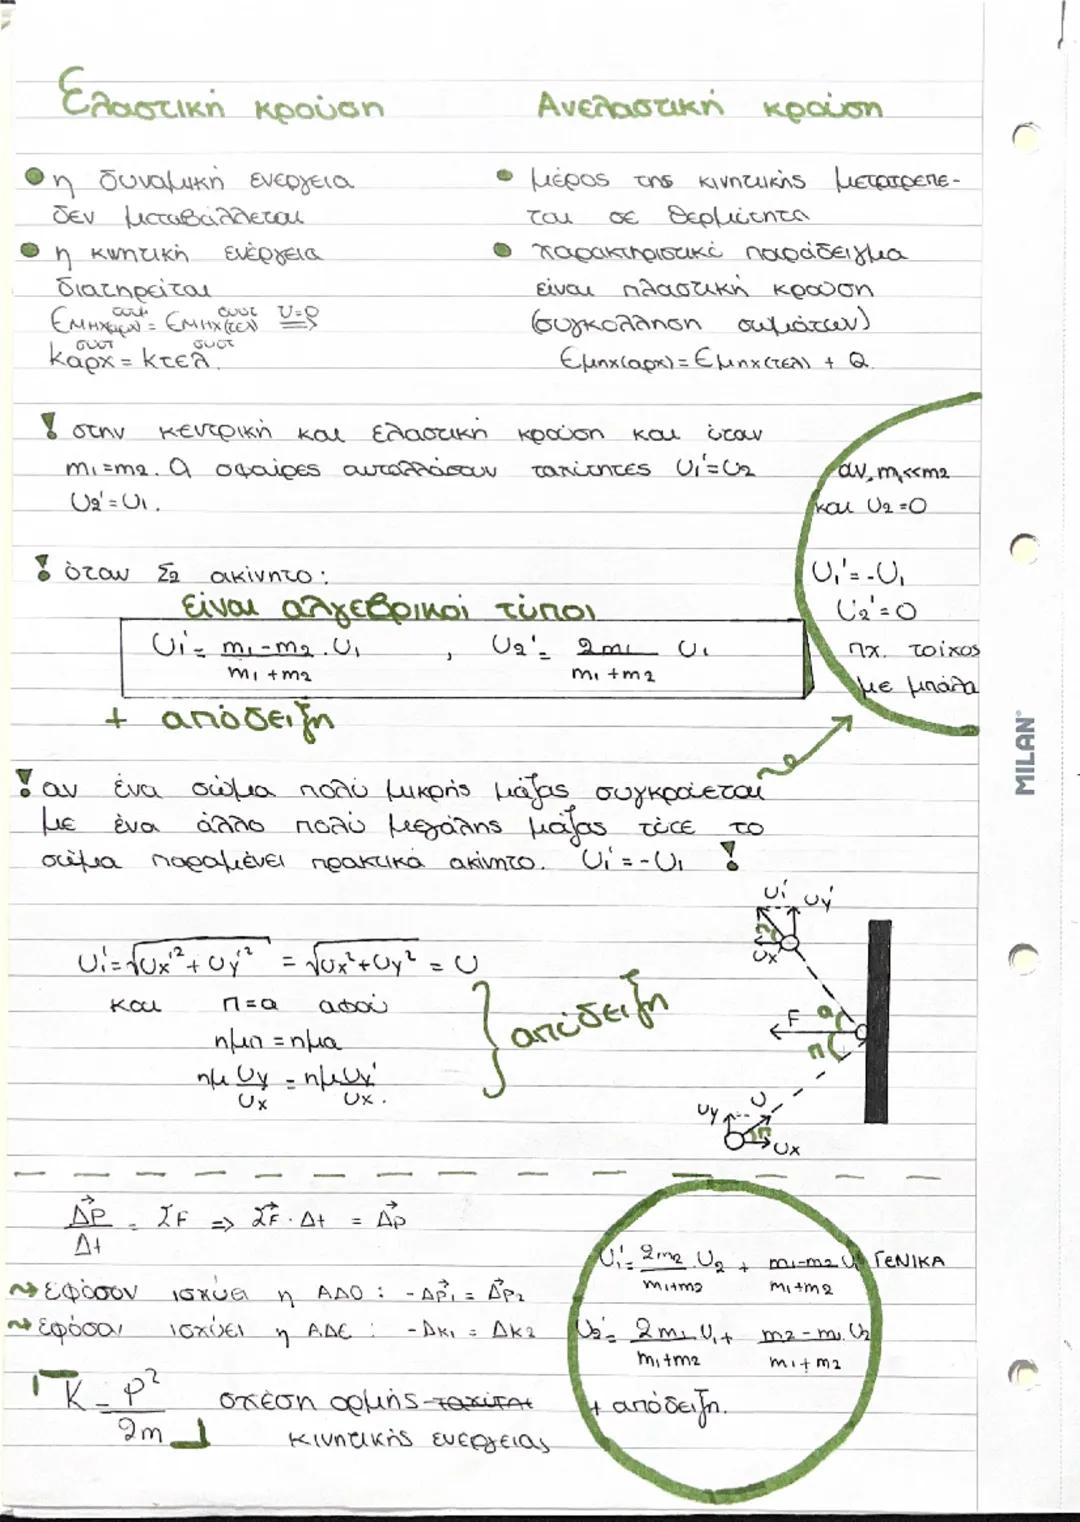 Ελαστική κρούση
η δυναμική ενέργεια
δεν μεταβάλλεται
η κινητική ενέργεια
διατηρείται
Εμηχ(αρχ)συστ = Εμηχ(τελ)συστ U=0
Καρχ συστ = Κτελ συστ.
Ανελαστική κρούση
μέρος της κινητικής μετατρέπε-
ται σε θερμότητα
χαρακτηριστικό παράδειγμα
είναι πλαστική κρούση
(συγκόλληση σωμάτων)
Εμηχ(αρχ) = Εμηχ(τελ) + Q
! στην κεντρική και ελαστική κρούση και όταν
m₁=m₂. Οι σφαίρες ανταλλάσουν ταχύτητες U₁'=U₂
U₂'=U₁.
αν m₁<<m₂
και U₂=0
U₁'=-U₁
U₂'=0
πχ. τοίχος
με μπάλα
! όταν Σ₂ ακίνητο:
είναι αλγεβρικοί τύποι
U₁' = m₁-m₂/m₁+m₂ . U₁ , U₂' = 2m₁/m₁+m₂ U₁
+ απόδειξη
! αν ένα σώμα πολύ μικρής μάζας συγκρούεται
με ένα άλλο πολύ μεγάλης μάζας τότε το
σώμα παραμένει πρακτικά ακίνητο. U₁'=-U₁ !
U₁'=√Ux'²+Uy'² = √Ux²+Uy² = U
και π=α αφού
ημπ = ημα
ημ Uy/Ux = ημ Uy'/Ux.
απόδειξη
U₁' Uy'
Ux
F α
π
Uy U
π Ux
ΔP/Δt = ΣF => ΣF · Δt = Δp
εφόσον ισχύει η ΑΔΟ : -Δp₁ = Δp₂
εφόσον ισχύει η ΑΔΕ : -ΔΚ₁ = ΔΚ₂
K = P²/2m σχέση ορμής
κινητικής ενέργειας
U₁' = 2m₂/m₁+m₂ . U₂ + m₁-m₂/m₁+m₂ U₁ ΓΕΝΙΚΑ
U₂' = 2m₁/m₁+m₂ U₁ + m₂-m₁/m₁+m₂ . U₂
+ απόδειξη.
MILAN